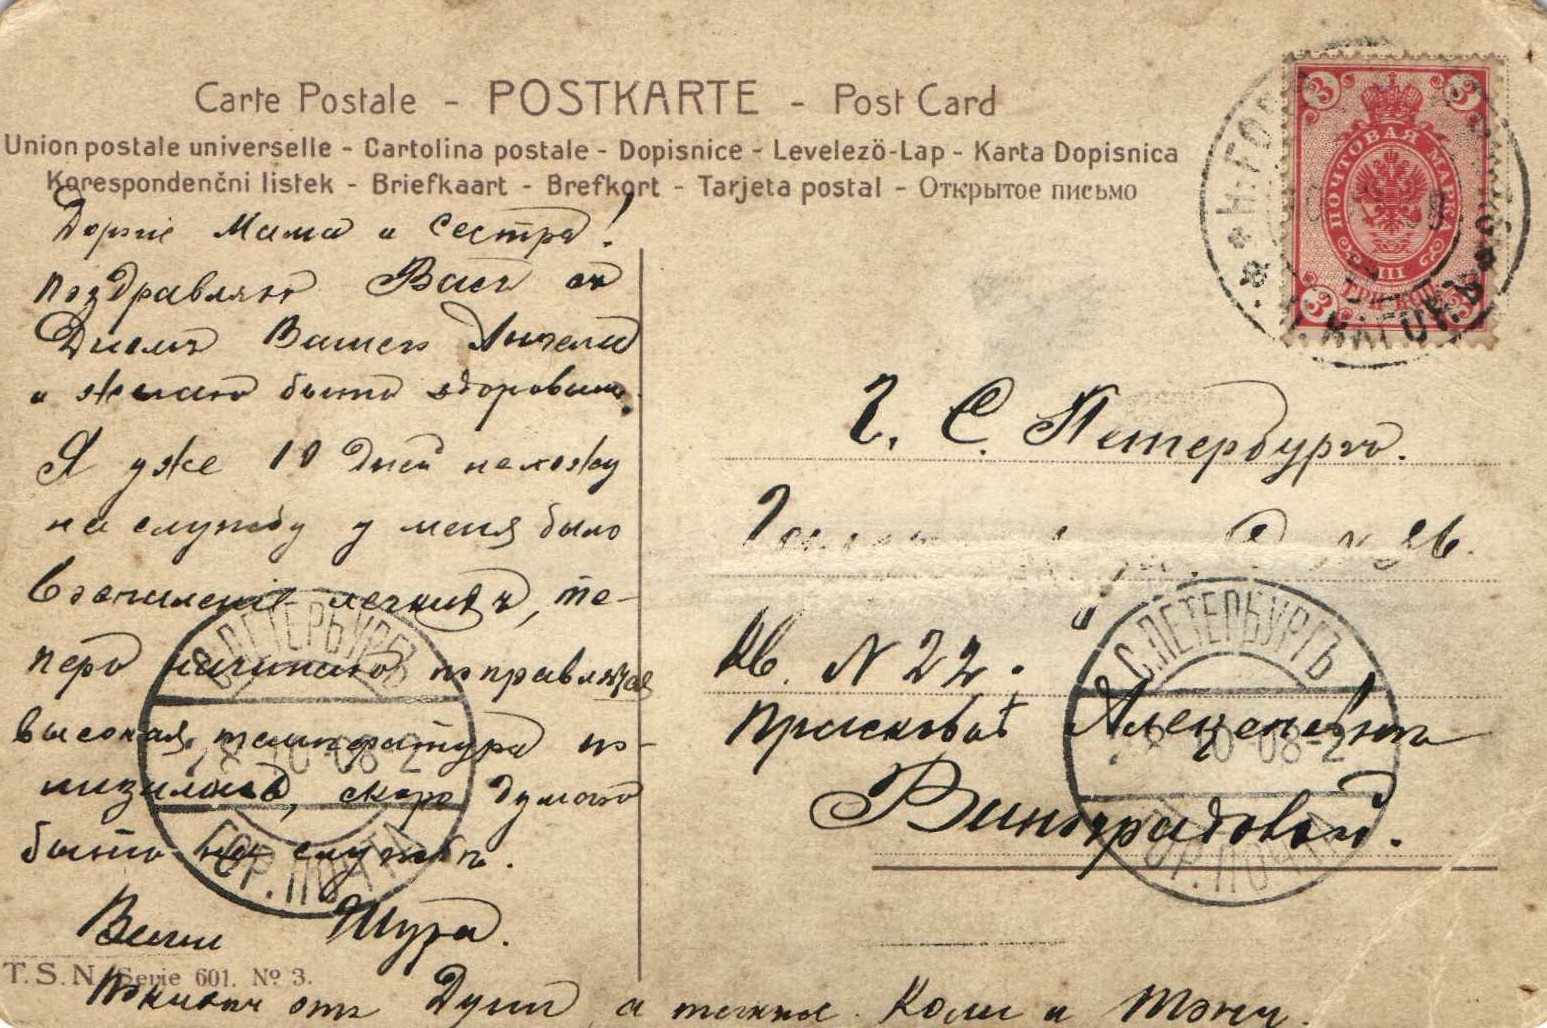 Carte Postale - POSTKARTE - Post Card
Union postale universelle - Cartolina postale - Dopisnice - Levelező-Lap - Karta Dopisnica
Korespondenčni listek - Briefkaart - Brefkort - Tarjeta postal - Открытое письмо
Дорогіе Мама и сестра!
поздравляю Васъ съ
Днемъ Вашего Ангела
и желаю быть здоровыми.
Я уже 10 дней нехожу
на службу у меня было
Воспаленіе легкихъ, те-
перь начинаю поправляться
высокая температура по-
низилась, скоро думаю
быть на службе.
Ваши Шура.
отъ Дуни, а также Коли и Тэни.
T.S.N. Serie 601. № 3.
Г. С. Петербургъ.
кв. N 22.
Прасковьѣ Алексеевнѣ
Виноградовой.
ПОЧТОВАЯ МАРКА
ТРИ КОП.
3 3 3 3
Н. НАГОРН.
С.ПЕТЕРБУРГЪ
10-08-2
ГОР. ПОЧТА
С.ПЕТЕРБУРГЪ
10-08-2
ГОР. ПОЧТА